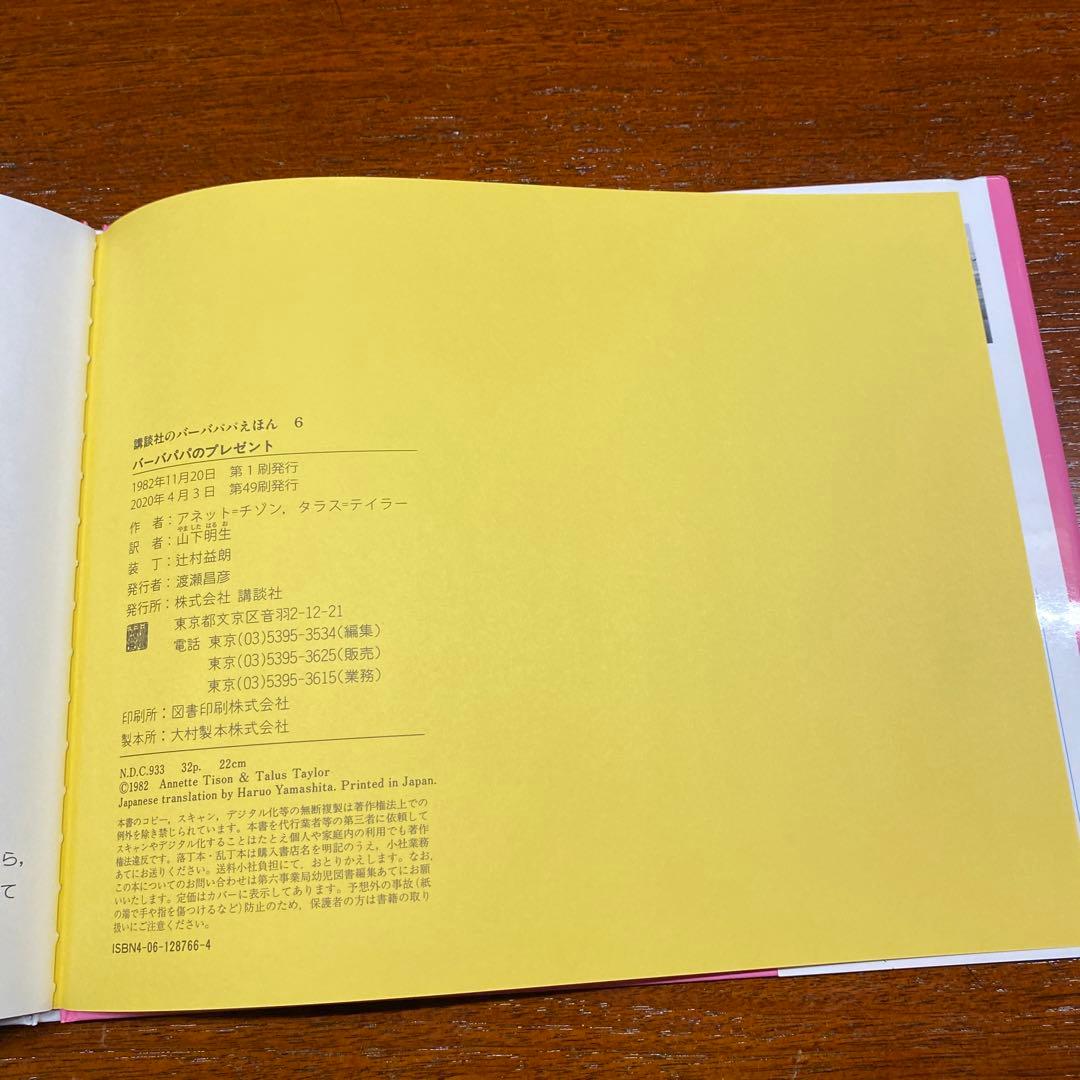 講談社のバーバパパえほん 6
バーバパパのプレゼント
1982年11月20日 第1刷発行
2020年4月3日 第49刷発行
作 者：アネット=チゾン，タラス=テイラー
やま した はる お
訳 者：山下明生
装 丁：辻村益朗
発行者：渡瀬昌彦
発行所：株式会社 講談社
東京都文京区音羽2-12-21
電話 東京(03)5395-3534(編集)
東京(03)5395-3625(販売)
東京(03)5395-3615(業務)
印刷所：図書印刷株式会社
製本所：大村製本株式会社
N.D.C.933 32p. 22cm
©1982 Annette Tison & Talus Taylor
Japanese translation by Haruo Yamashita. Printed in Japan.
本書のコピー，スキャン，デジタル化等の無断複製は著作権法上での
例外を除き禁じられています。本書を代行業者等の第三者に依頼して
スキャンやデジタル化することはたとえ個人や家庭内の利用でも著作
権法違反です。落丁本・乱丁本は購入書店名を明記のうえ，小社業務
あてにお送りください。送料小社負担にて，おとりかえします。なお，
この本についてのお問い合わせは第六事業局幼児図書編集あてにお願
いいたします。定価はカバーに表示してあります。予想外の事故（紙
の端で手や指を傷つけるなど）防止のため，保護者の方は書籍の取り
扱いにご注意ください。
ISBN4-06-128766-4
ら，
て